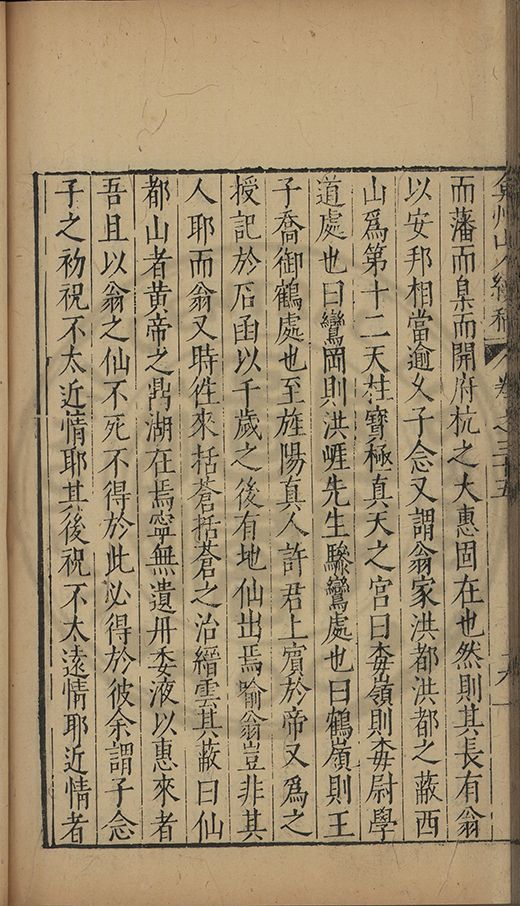 弇州山人續稿 卷之三十五 六
而藩而臬而開府杭之大惠固在也然則其長有翁
以安邦相當逾久子念又謂翁家洪都洪都之蔽西
山爲第十二天柱寶極真天之宮曰梅嶺則梅尉學
道處也曰鸞岡則洪崕先生驂鸞處也曰鶴嶺則王
子喬御鶴處也至旌陽真人許君上賓於帝又爲之
授記於石函以千歲之後有地仙出焉喻翁豈非其
人耶而翁又時徃來括蒼括蒼之治縉雲其蔽曰仙
都山者黄帝之鼎湖在焉寧無遺丹委液以惠來者
吾且以翁之仙不死不得於此必得於彼余謂子念
子之初祝不太近情耶其後祝不太遠情耶近情者